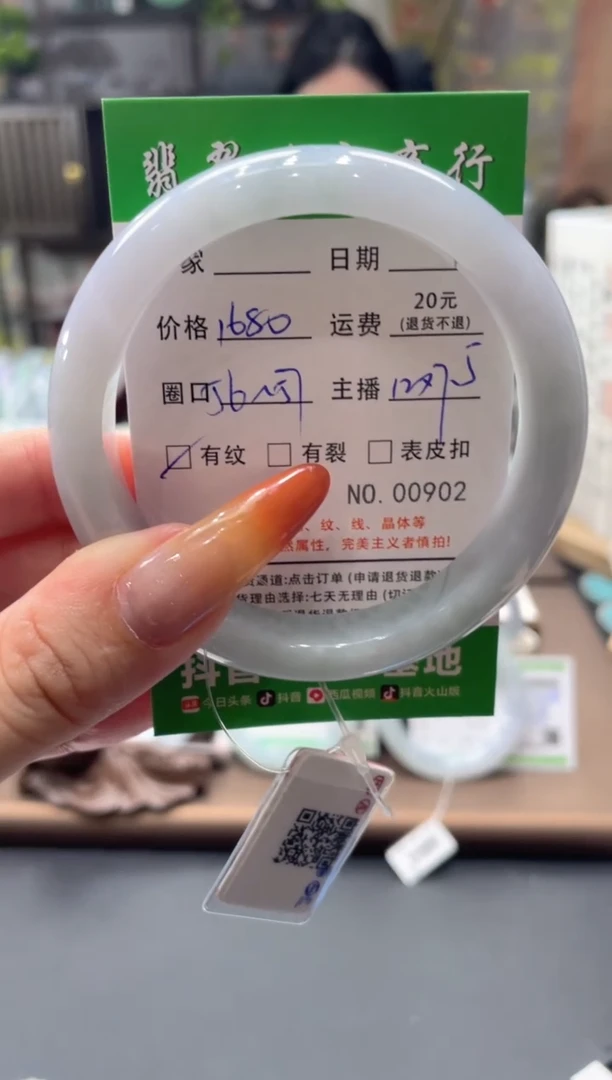 翡翠 商行
家 日期
价格 1680 运费 20元
(退货不退)
圈口 56 主播
有纹 有裂 表皮扣
NO. 00902
、纹、线、晶体等
然属性，完美主义者慎拍!
道:点击订单 (申请退货退款
货理由选择:七天无理由 (切
抖音 基地
今日头条 抖音 西瓜视频 抖音火山版